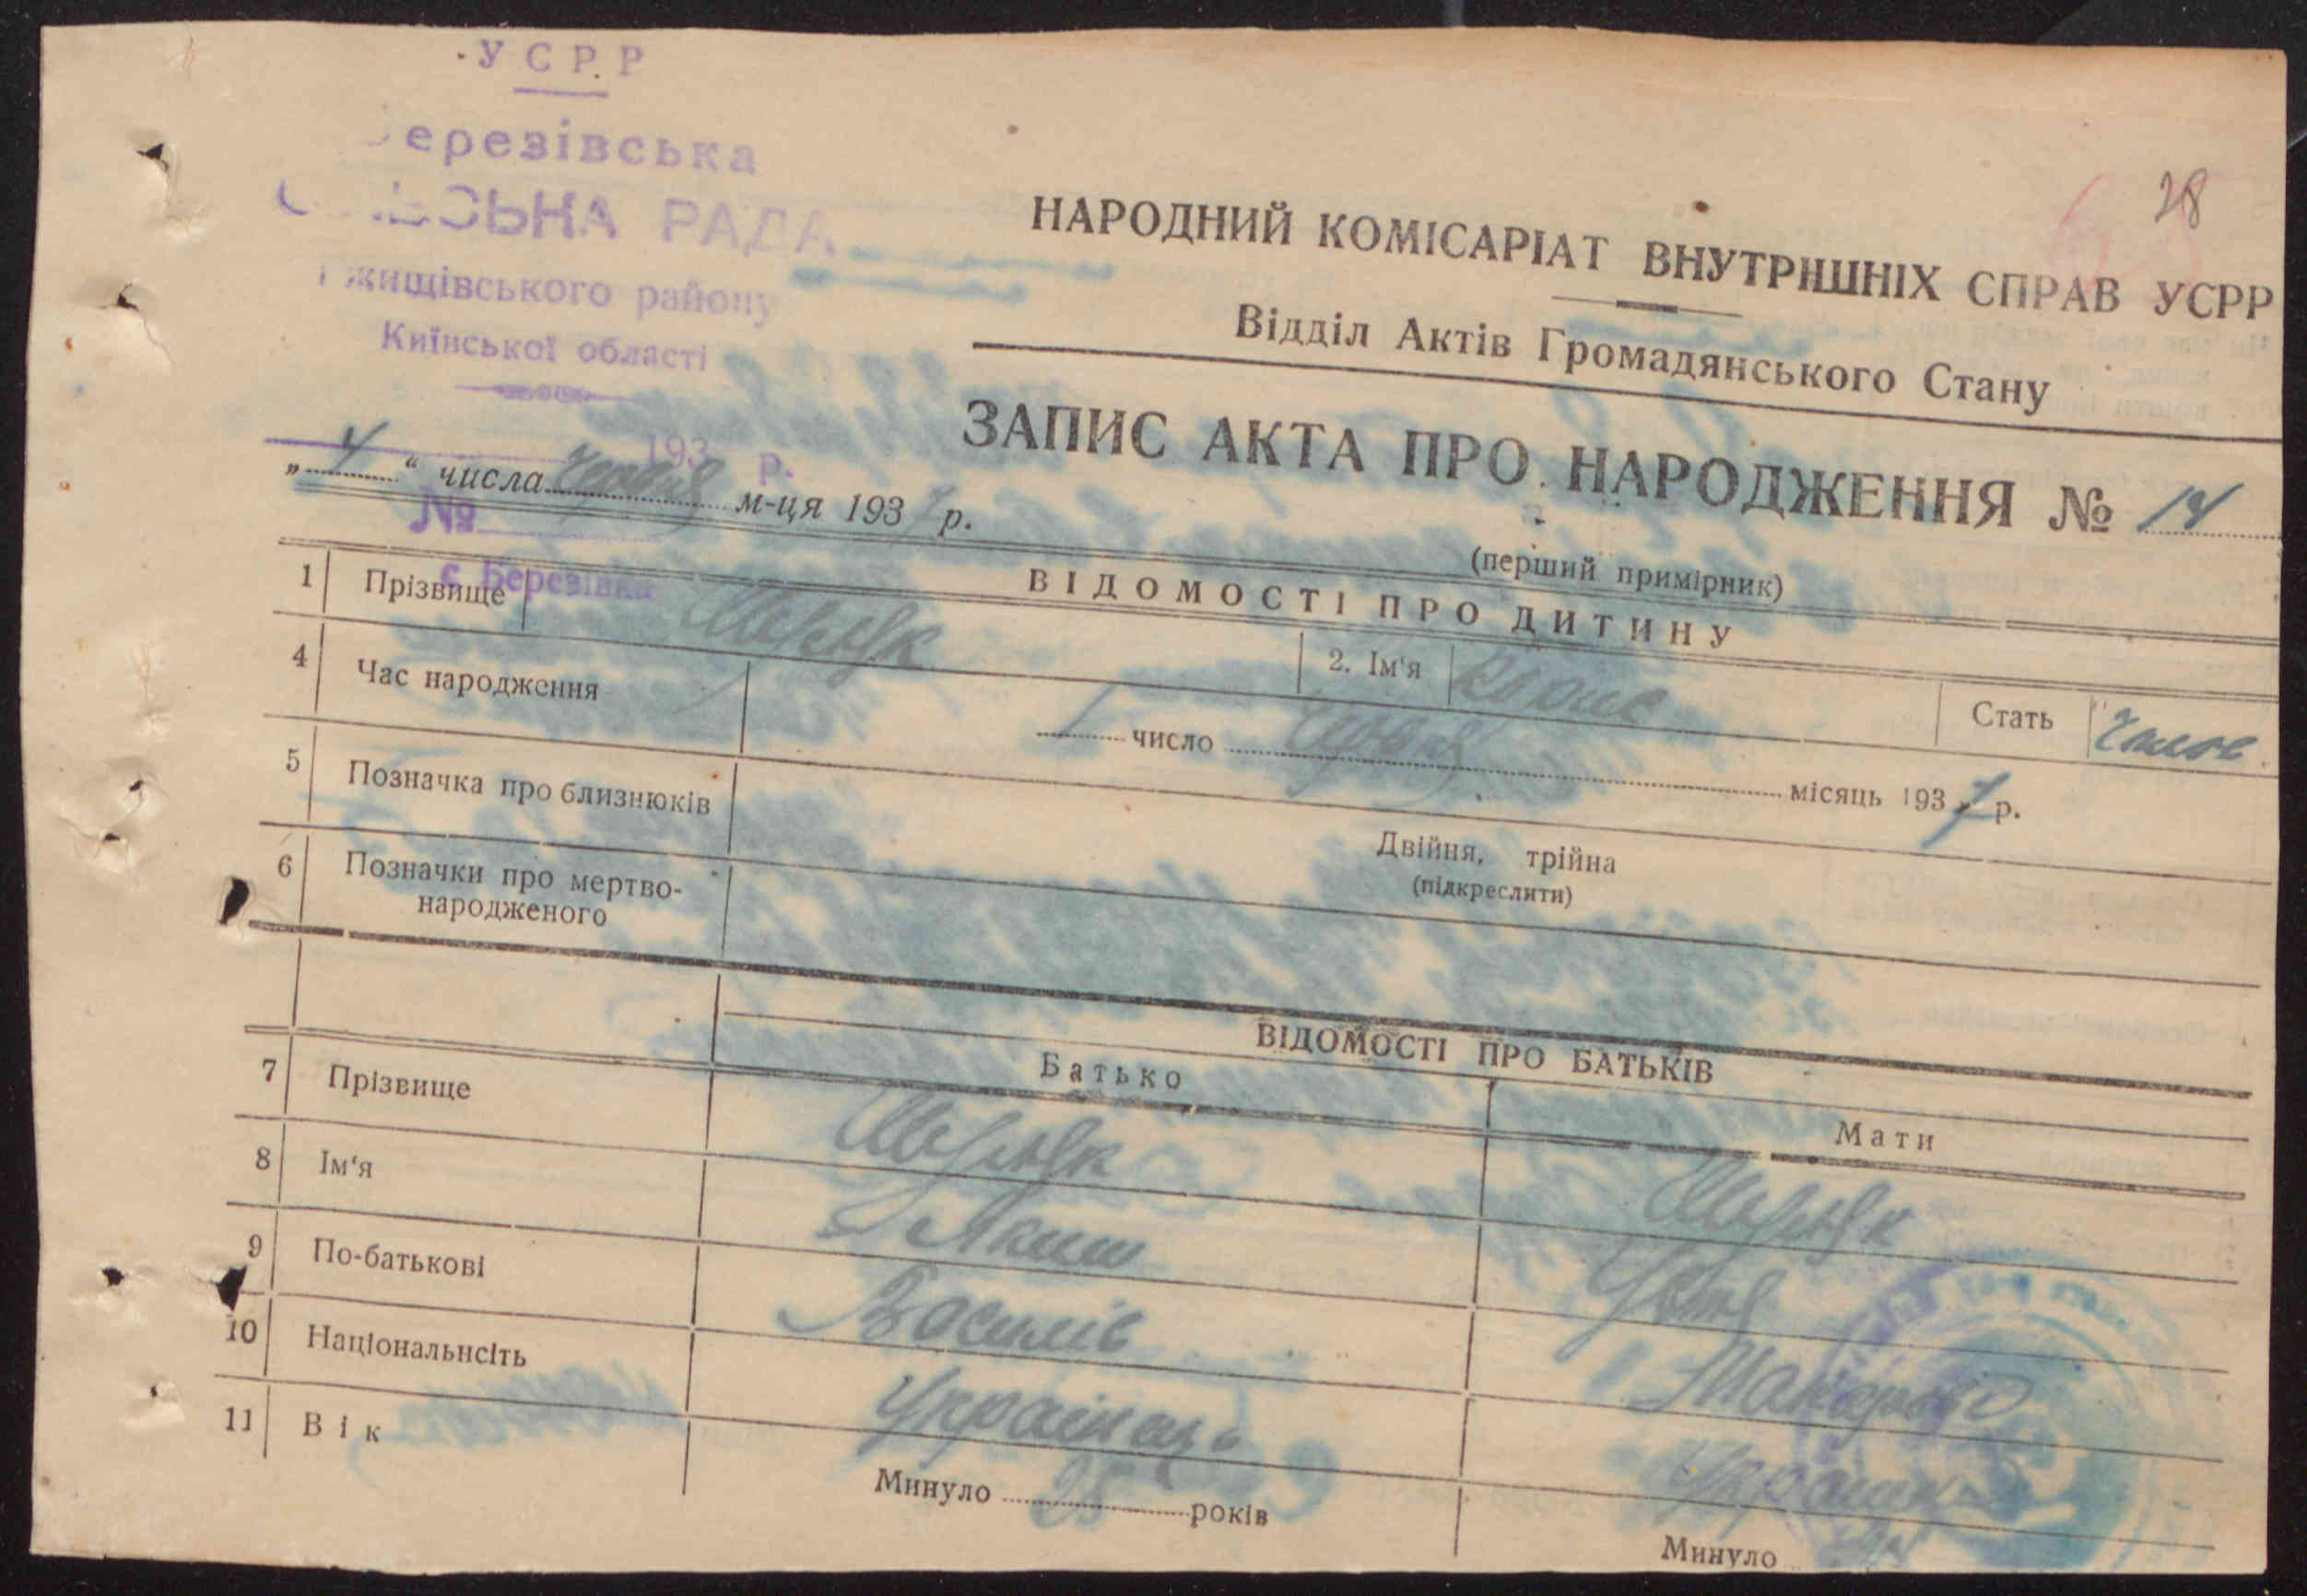 УСРР
ерезівська
СЬКА РАДА
жищівського району
Київської області
193 р.
№
с. Березівка
28
НАРОДНИЙ КОМІСАРІАТ ВНУТРІШНІХ СПРАВ УСРР
Відділ Актів Громадянського Стану
ЗАПИС АКТА ПРО НАРОДЖЕННЯ № 14
„4“ числа червня м-ця 1937 р.
(перший примірник)
ВІДОМОСТІ ПРО ДИТИНУ
1 Прізвище 2. Ім'я Стать Чолов
4 Час народження 1 число червня місяць 1937 р.
5 Позначка про близнюків Двійня, трійна
(підкреслити)
6 Позначки про мертво-
народженого
ВІДОМОСТІ ПРО БАТЬКІВ
Батько Мати
7 Прізвище
8 Ім'я Яким
9 По-батькові Василів
10 Національнсіть Українець
11 Вік Минуло 25 років Минуло